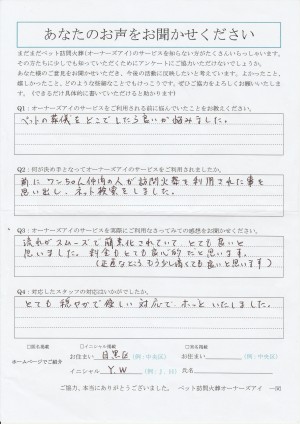 あなたのお声をお聞かせください
まだまだペット訪問火葬(オーナーズアイ)のサービスを知らない方がたくさんいらっしゃいます。
その方たちに少しでも知っていただくためにアンケートにご協力いただけないでしょうか。
あなた様のご意見をお聞かせいただき、今後の活動に反映したいと考えています。よかったこと、
嬉しかったこと、どのような経験などでもけっこうです。ぜひご協力をよろしくお願いいたします。
(できるだけ具体的に書いていただけると助かります)
Q1:オーナーズアイのサービスをご利用される前に悩んでいたことをお教えください。
ペットの葬儀をどこでしたら良いか悩みました。
Q2:何が決め手となってオーナーズアイのサービスをご利用されましたか。
前にワンちゃん仲間の人が訪問火葬を利用された事を
思い出し、ネット検索をしました。
Q3:オーナーズアイのサービスを実際にご利用なさってみての感想をお聞かせください。
流れがスムーズで簡素化されていて、とても良いと
思いました。料金もとても良心的だと思います。
(正直なところもう少し高くても良いと思います)
Q4:対応したスタッフの対応はいかがでしたか。
とても穏やかで優しい対応でホッといたしました。
□匿名掲載 □イニシャル掲載 □実名掲載
ホームページでご紹介
お住まい 目黒区 (例:中央区) お住まい (例:中央区)
イニシャル Y.W (例:J.I) 氏名
ご協力、本当にありがとうございました。 ペット訪問火葬オーナーズアイ